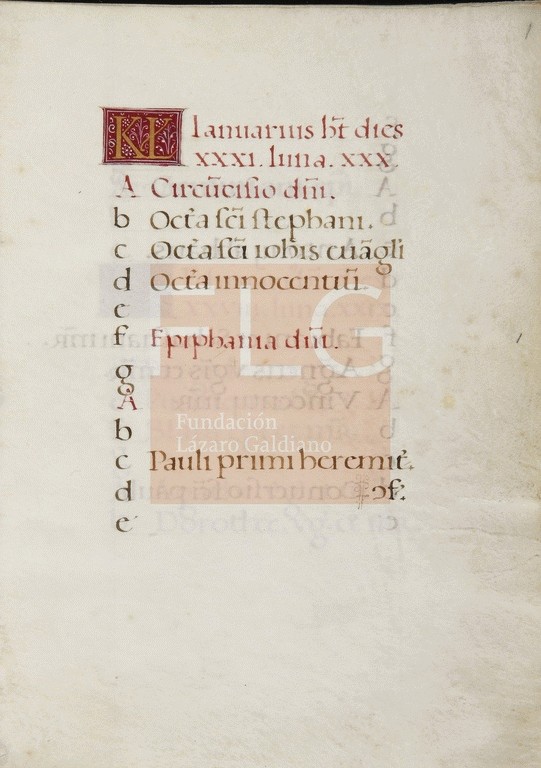 KL Ianuarius ht̄ dies
xxxi. luna. xxx.
A Circūcisio dn̄i.
b Octa sc̄i stephani.
c Octa sc̄i iohis euāgli
d Octa innocentiū.
e
f Epiphania dn̄i.
g
A
b
c Pauli primi heremit.
d ɔf.
e
FLG
Fundación
Lázaro Galdiano